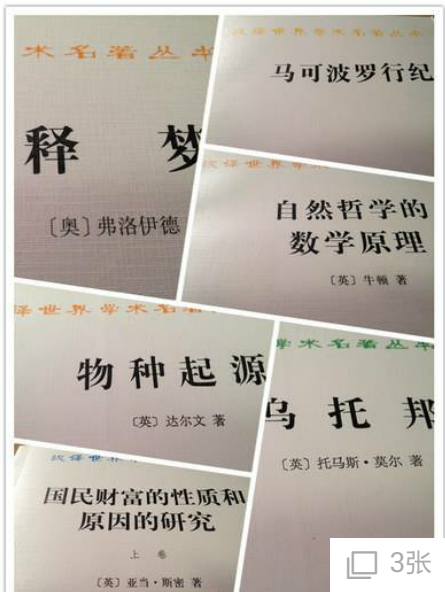 术名著丛书
释 梦
〔奥〕弗洛伊德
马可波罗行纪
汉译世界学术名著丛
汉译世界学
自然哲学的
数学原理
〔英〕牛顿 著
译世界学术名著丛书
物种起源
〔英〕达尔文 著
学术名著丛书
乌托邦
〔英〕托马斯·莫尔 著
汉译世界
国民财富的性质和
原因的研究
上 卷
〔英〕亚当·斯密 著
3张